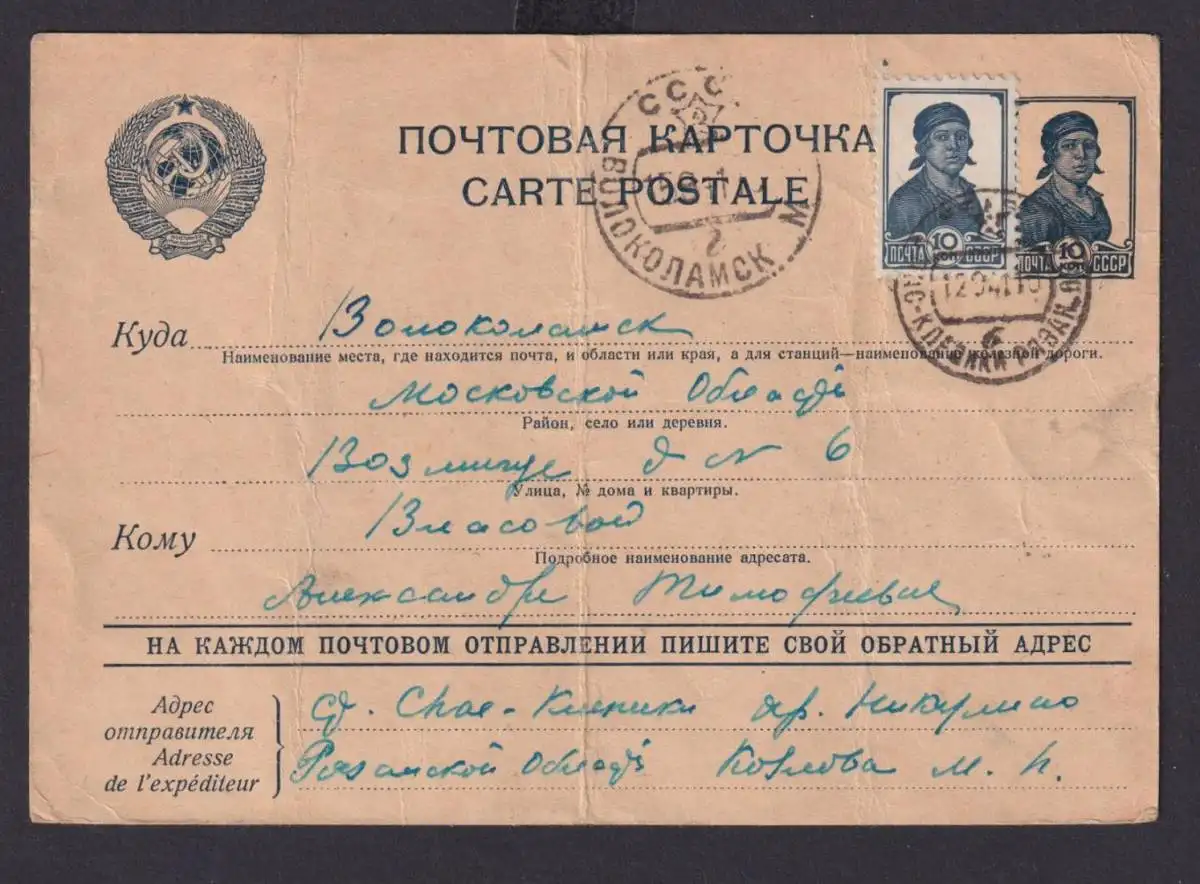 ПОЧТОВАЯ КАРТОЧКА
CARTE POSTALE
СССР
15 9 41
2
ВОЛОКОЛАМСК М
ПОЧТА 10 КОП СССР
ПОЧТА 10 КОП СССР
12 9 41 1
СПАС-КЛЕПИКИ РЯЗАН.
б
Куда Волоколамск
Наименование места, где находится почта, и области или края, а для станций—наименование железной дороги.
Московской Области
Район, село или деревня.
Возмище д № 6
Улица, № дома и квартиры.
Кому Власовой
Подробное наименование адресата.
Александре Тимофеевне
НА КАЖДОМ ПОЧТОВОМ ОТПРАВЛЕНИИ ПИШИТЕ СВОЙ ОБРАТНЫЙ АДРЕС
Адрес отправителя
Adresse de l'expéditeur
Спас-Клепики др. Никулино
Рязанской Области Козлова М. И.